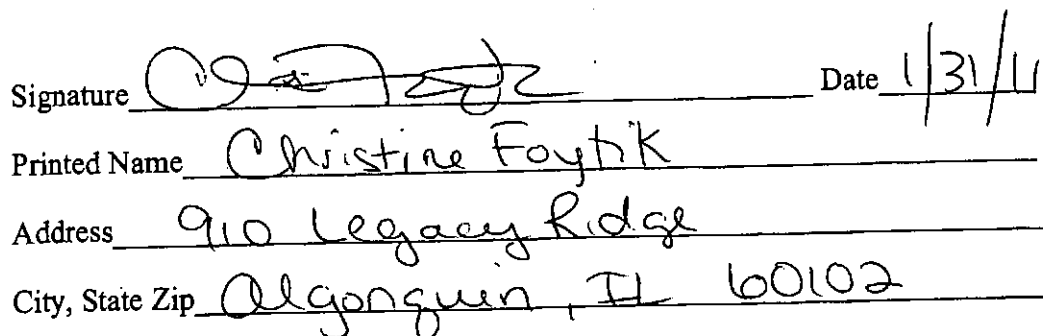 Signature Date 1/31/11
Printed Name Christine Foytik
Address 910 Legacy Ridge
City, State Zip Algonquin, IL 60102